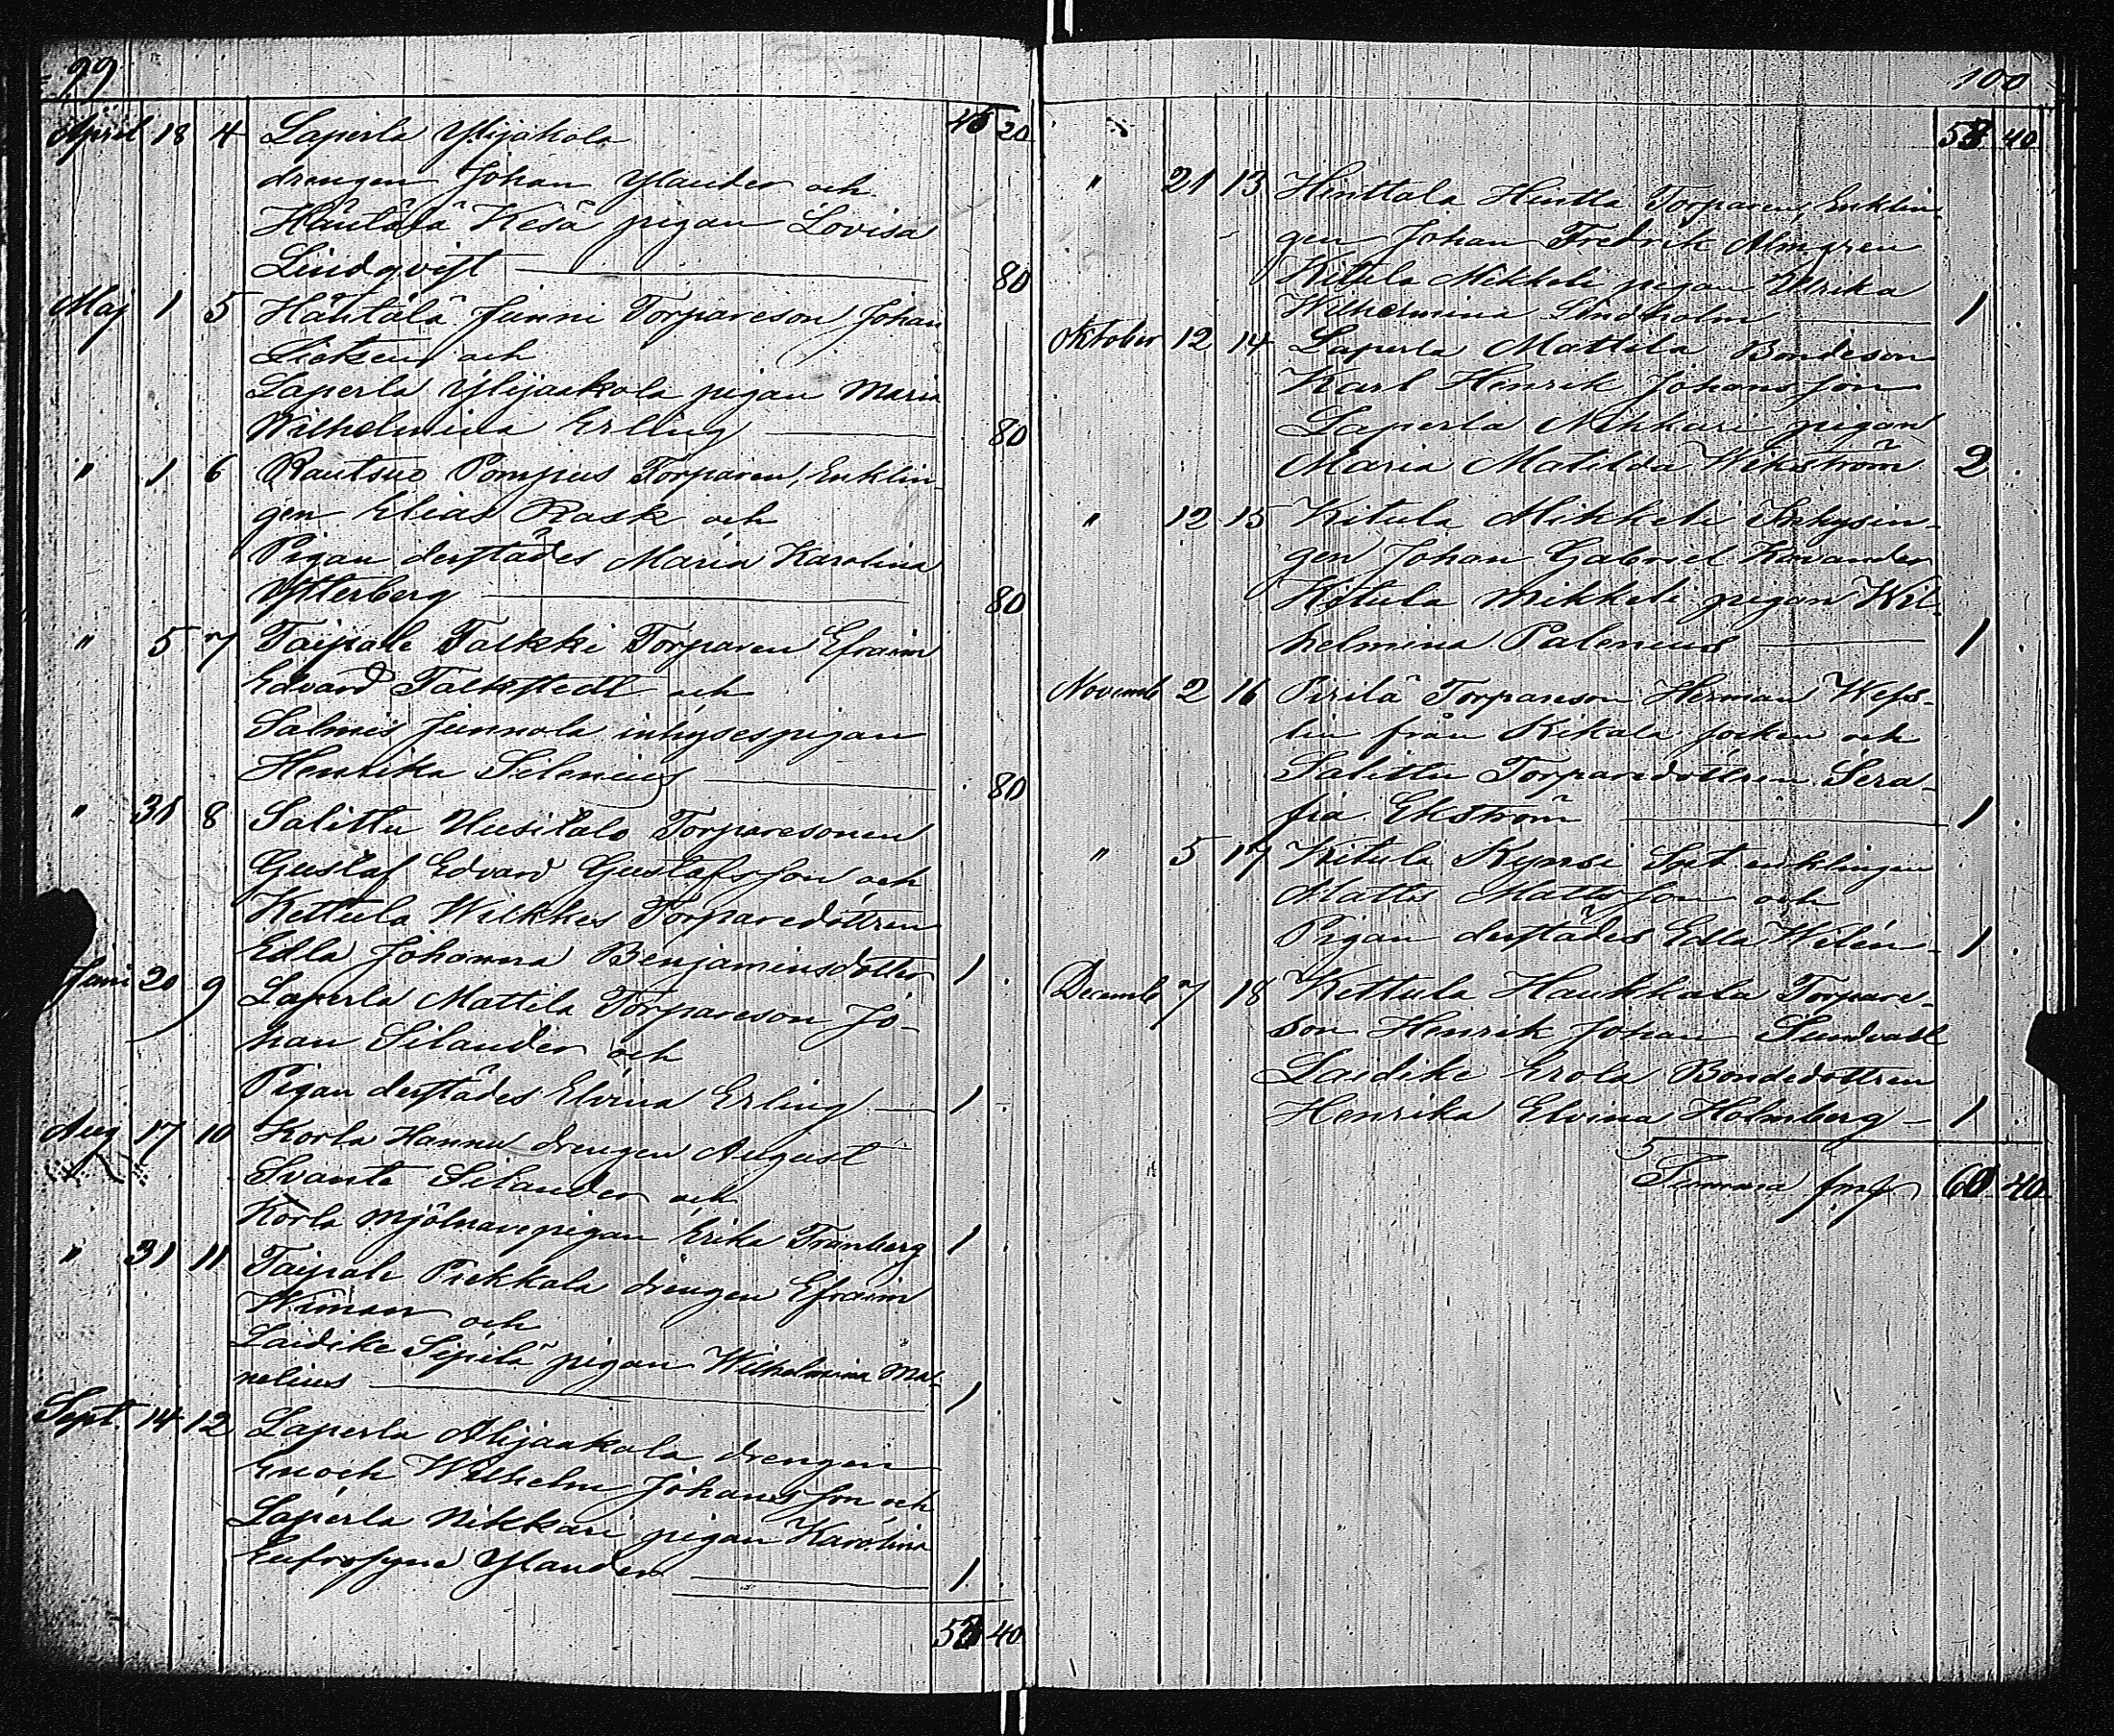 99
April 18 4 Laperla Ylijakola 46 20
drengen Johan Ylander och
Häntälä Kesä pigan Lovisa
Lindqvist 80
Maj 1 5 Häntälä Junni Torpareson Johan
och
Laperla Ylijaakola pigan Maria
Wilhelmina Erling 80
" 1 6 Rautsuo Pompus Torparen, Enklin-
gen Elias Rask och
Pigan derstädes Maria Karolina
Ytterberg 80
" 5 7 Taipale Talkki Torparen Efraim
Edvard Talkstedt och
Salmis Junnola inhysespigan
Henrika Silenius 80
" 31 8 Salittu Uusitalo Torparesonen
Gustaf Edvard Gustafsson och
Kettula Wilkkus Torparedottren
Edla Johanna Benjaminsdotter 1 .
Juni 20 9 Laperla Mattila Torpareson Jo-
han Silander och
Pigan derstädes Elvina Erling 1 .
Aug 17 10 Korla Hannu drengen August
Svante Silander och
Korla mjölnarepigan Erika Tranberg 1 .
" 31 11 Taipale Pirkkala drengen Efraim
Wiman och
Laidike Sipilä pigan Wilhelmina Ma-
nelius 1 .
Sept. 14 12 Laperla Alijaakola drengen
Enoch Wilhelm Johansson och
Laperla Nikkari pigan Karolina
Eufrosyne Ylander 1 .
40
100
40
" 21 13 Hinttala Hintta Torparen, Enklin-
gen Johan Fredrik Almgren
Kitula Mikkeli pigan Ulrika
Wilhelmina Lindholm 1 .
Oktober 12 14 Laperla Mattila Bondeson
Karl Henrik Johansson
Laperla Nikkari pigan
Maria Matilda Wikström 2 .
" 12 15 Kitula Mikkeli Inhysin-
gen Johan Gabriel Kavander
Kitula Mikkeli pigan Wil-
helmina Palenius 1 .
Novemb 2 16 Pirilä Torpareson Herman Wess-
lin från Kikala socken och
Salittu Torparedottren Sera-
fia Ekström 1 .
" 5 17 Kitula Kynsi enklingen
Matts Mattsson och
Pigan derstädes Edla Welén 1 .
Decemb 7 18 Kettula Haukkala Torpare-
son Henrik Johan Sundvall
Laidike Erola Bondedottren
Henrika Elvina Holmberg 1 .
Summa fmk 40